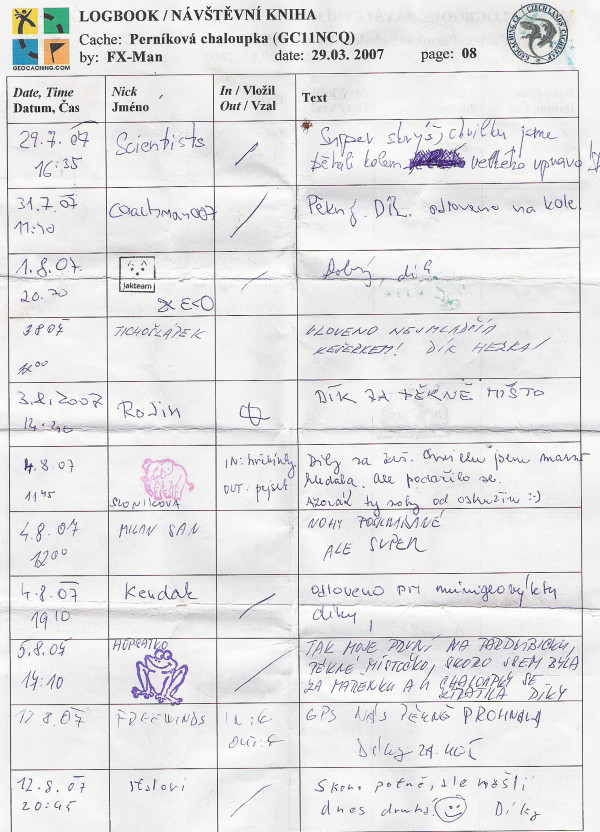 LOGBOOK / NÁVŠTĚVNÍ KNIHA
Cache: Perníková chaloupka (GC11NCQ)
by: FX-Man date: 29.03. 2007 page: 08
GEOCACHING.COM
Date, Time Nick In / Vložil Text
Datum, Čas Jméno Out / Vzal
29.7.07 Scientists Super skrýš, chvilku jsme
16:35 běhali kolem velkého vpravo
31.7.07 Coachman007 Pěkný. Dík. odloveno na kole.
11:40
1.8.07. Dobrý, dík
20.20 jakteam
TICHOŠLÁPEK ULOVENO NEJMLADŠÍM
KEŠERKEM! DÍK
3.8.2007 Rodin DÍK ZA PĚKNÉ MÍSTO
14:20
4.8.07 IN: Díky za keš. Chvilku jsem marně
hledala. Ale podařilo se.
11:45 SLONÍKOVÁ OUT: pejsek
ty nohy od :-)
4.8.07 MILAN SAN NOHY
12:00 ALE SUPER
4.8.07 Kendak odloveno při
19:10 díky
5.8.07 HOPRATKO TAK MOJE PRVNÍ NA PARDUBICKU,
PĚKNÉ MÍSTEČKO, SKORO JSEM BYLA
14:10 ZA MAŘENKU A CHALOUPKY SE
DÍKY
12.8.07 FREEWINDS IN: GPS NÁS PĚKNĚ PROHNALA
OUT:
Díky ZA KEŠ
12.8.07 Skoro potmě, ale našli
20:45 dnes druhá. Díky